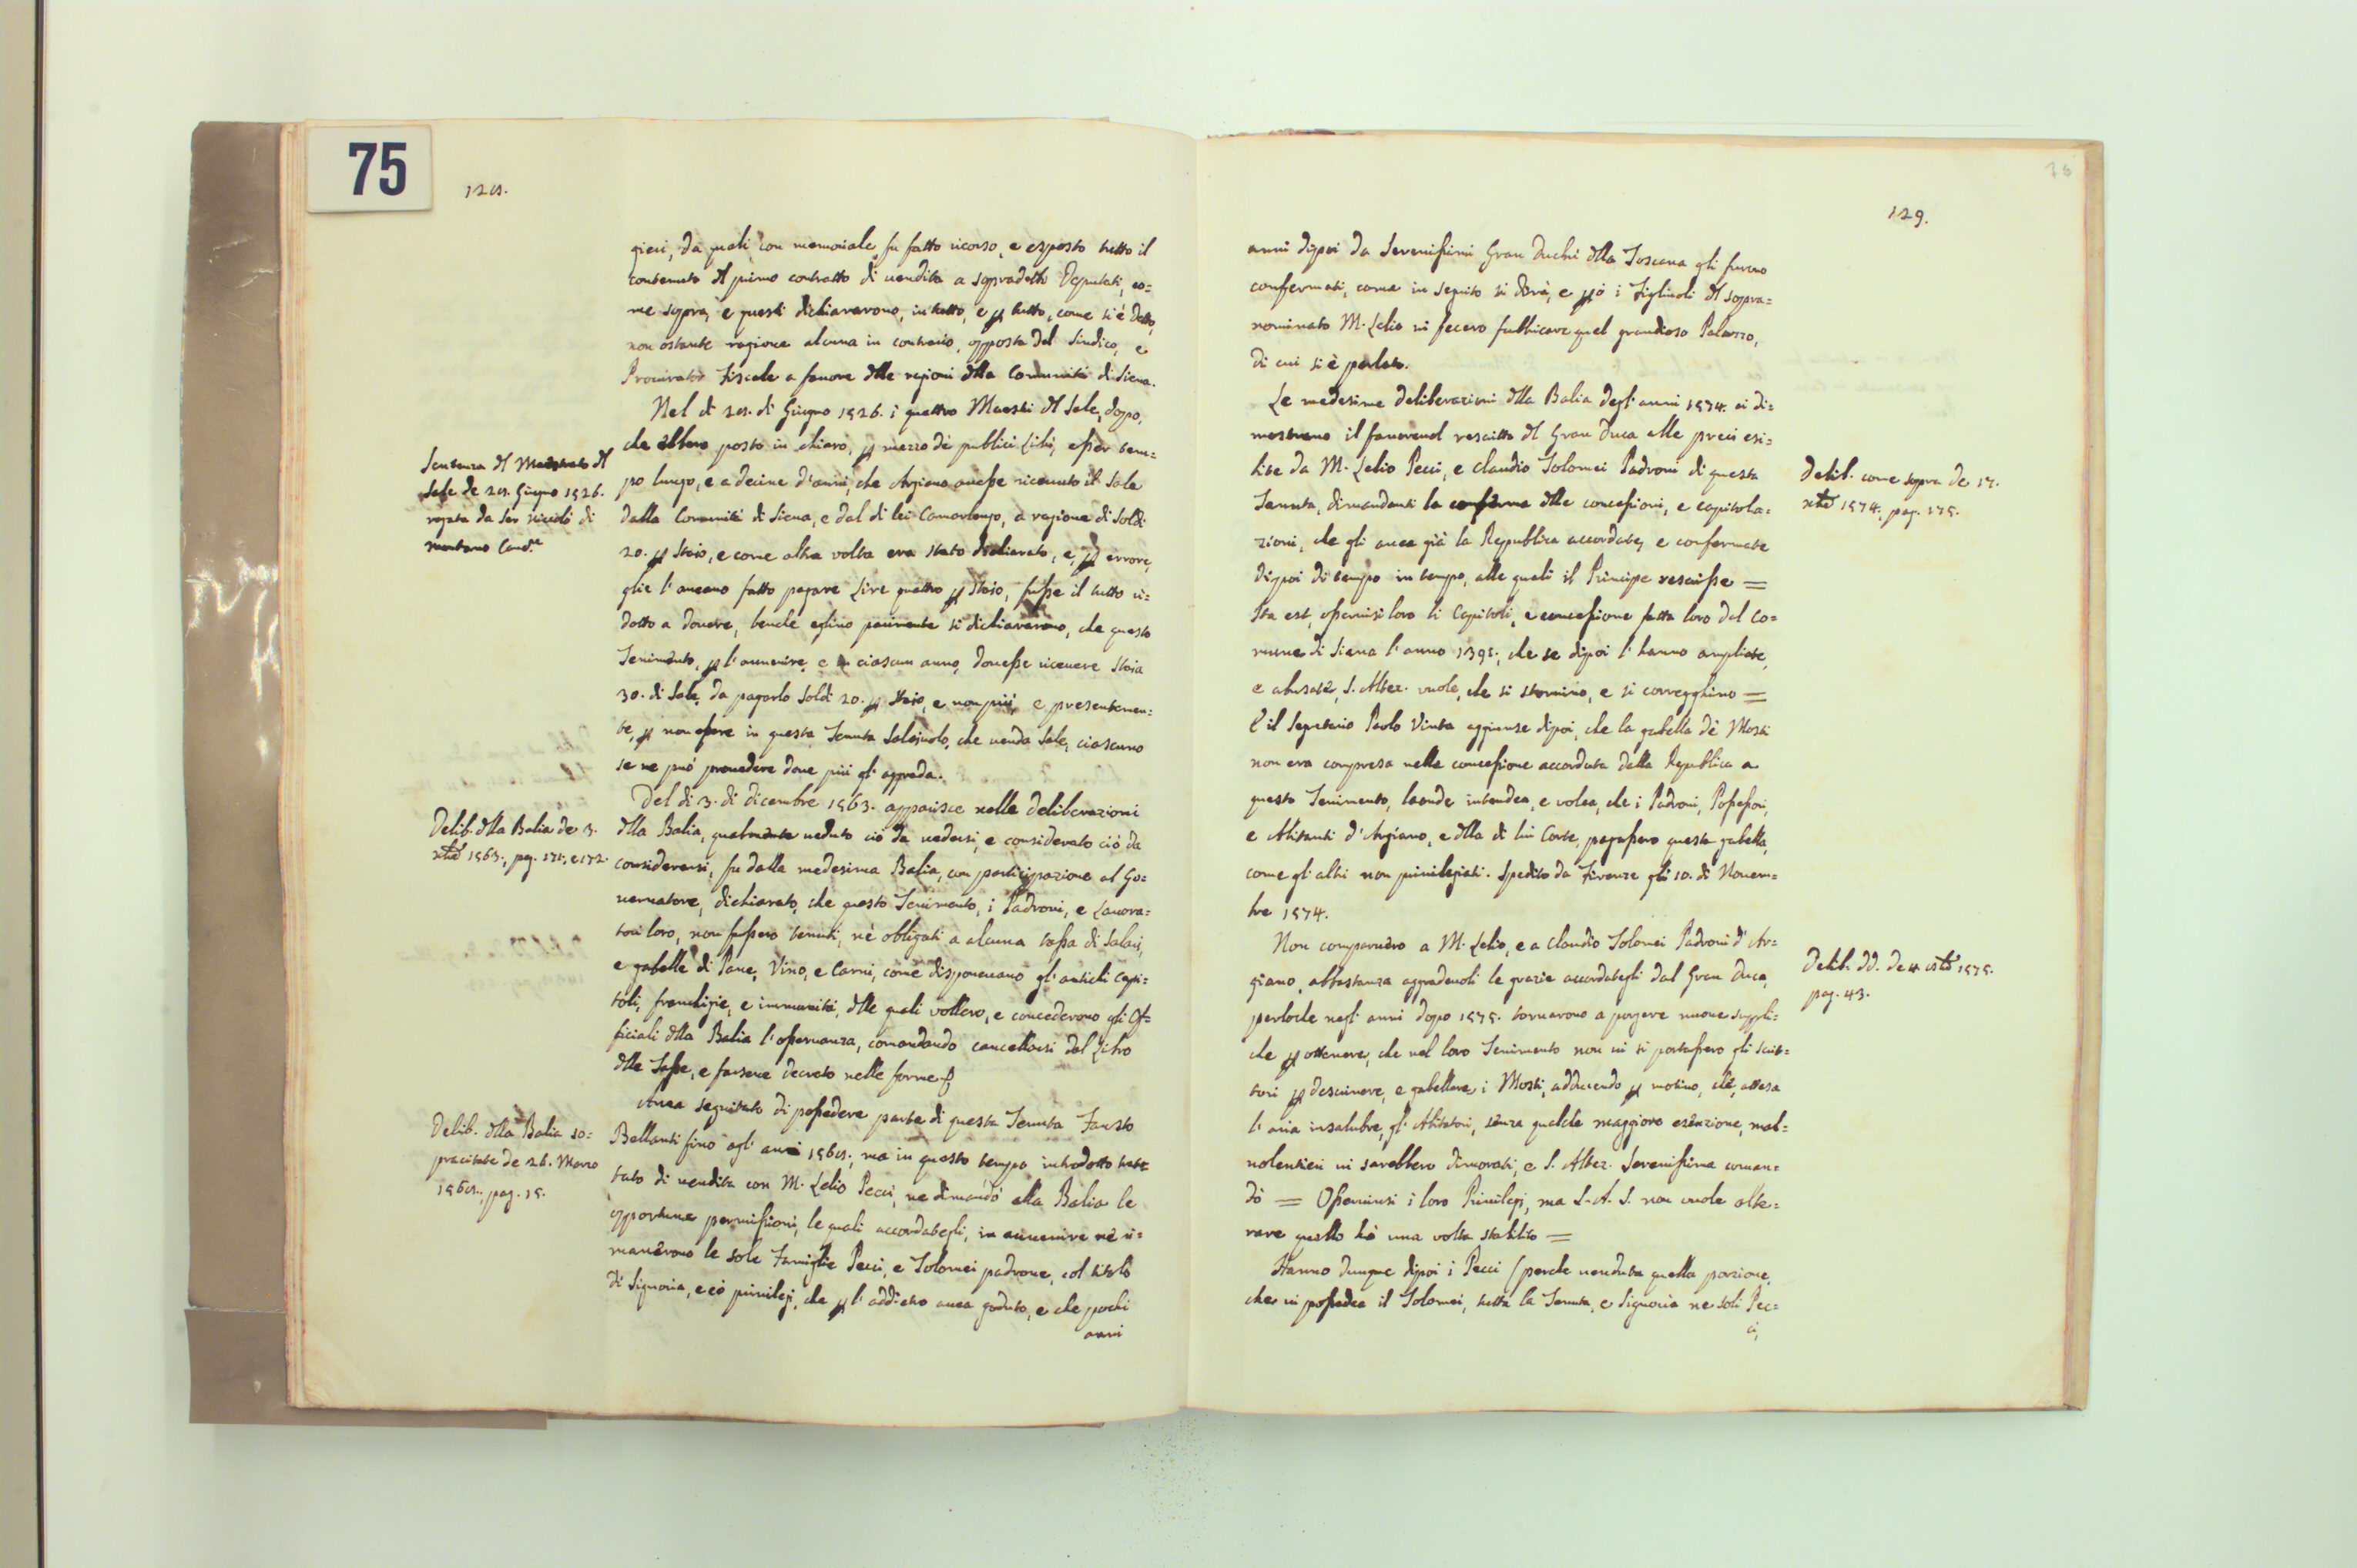 75
128.
gieri, da quali con memoriale fu fatto ricorso, e esposto tutto il
contenuto dl primo contratto di uendita a sopradetti Deputati, co=
me sopra, e questi dichiararono, in tutto, e p tutto, come si è detto,
non ostante ragione alcuna in contrario, opposta dal Sindico, e
Procurator Fiscale a fauore dlle ragioni dlla Comunità di Siena.
Nel dì 28. di Giugno 1526. i quattro Maestri dl Sale, dopo,
che ebbero posto in chiaro, p mezzo dè publici Libri, esser tem=
po lungo, e a decine d'anni, che Argiano auesse riceuuto il Sale
dalla Comunità di Siena, e dal di lei Camarlengo, a ragione di Soldi
20. p Staio, e come altra volta era stato dichiarato, e, p errore,
glie l'aueano fatto pagare Lire quattro p Staio, fusse il tutto ri=
dotto a douere, benche eglino parimente si dichiararono, che questo
Tenimento, p l'auuenire, e in ciascun anno, douesse riceuere Staia
30. di Sale, da pagarlo Soldi 20. p Staio, e non più, e presentemen=
te, p non essere in questa Tenuta Salaiuolo, che uenda Sale, ciascuno
se ne può prouedere doue più gl'aggrada.
Del dì 3. di dicembre 1563. apparisce nelle deliberazioni
dlla Balia, qualmente ueduto ciò da uedersi, e considerato ciò da
considerarsi, fu dalla medesima Balia, con participazione al Go=
uernatore, dichiarato, che questo Tenimento, i Padroni, e Lauora=
tori loro, non fussero tenuti, nè obligati a alcuna tassa di Salari,
e gabelle di Pane, Vino, e Carni, come disponeuano gl'antichi Capi=
toli, franchigie, e immunità, dlle quali vollero, e concederono gli Of=
ficiali dlla Balia l'osseruanza, comandando cancellarsi dal Libro
dlle Tasse, e farsene decreto nelle forme
Auea seguitato di possedere parte di questa Tenuta Fausto
Bellanti fino agl'anni 1568., ma in questo tempo introdotto trat
tato di uendita con M. Lelio Pecci, ne dimandò alla Balia le
opportune permissioni, le quali accordategli, in auuenire nè ri=
manèrono le sole Famiglie Pecci, e Tolomei padrone, col titolo
di Signoria, e cò priuilegi, che p l'addietro auea goduto, e che pochi
anni
Sentenza dl Maestrato dl
Sale de 28. Giugno 1526.
rogata da Ser Niccolò di
Delib. dlla Balia de 3.
xbre 1563., pag. 171. e 172.
Delib. dlla Balia so=
pracitate de 26. Marzo
1568., pag. 15.
76
129.
anni dipoi da Serenissimi Gran Duchi dlla Toscana gli furno
confermati, come in seguito si dirà, e pò i Figliuoli dl sopra=
nominato M. Lelio ui fecero fabbricare quel grandioso Palazzo,
di cui si è parlato.
Le medesime deliberazioni dlla Balia degl'anni 1574. ci di=
mostrano il fauoreuol rescitto dl Gran Duca alle preci esi=
bite da M. Lelio Pecci, e Claudio Tolomei Padroni di questa
Tenuta, dimandanti la conferma dlle concessioni, e capitola=
zioni, che gli auea già la Republica accordate, e confermate
dipoi di tempo in tempo, alle quali il Principe rescrisse =
Ita est, osseruisi loro li Capitoli, e concessione fatta loro dal Co=
mune di Siena l'anno 1395., che se dipoi l'hanno ampliate,
e abusate, S. Altez. vuole, che si stornino, e si correghino =
E il Segretario Paolo Vinta aggiunse dipoi, che la gabella dè Mosti
non era compresa nelle concessione accordata dalla Republica a
questo Tenimento, laonde intendea, e volea, che i Padroni, Possessori,
e Abitanti d'Argiano, e dlla di lui Corte, pagassero questa gabella,
come gl'altri non priuilegiati. Spedito da Firenze gli 10. di Nouem=
bre 1574.
Non comparuèro a M. Lelio, e a Claudio Tolomei Padroni d'Ar=
giano, abbastanza aggradeuoli le grazie accordategli dal Gran Duca,
perloche negl'anni dopo 1575. tornarono a porgere nuoue suppli=
che p ottenere, che nel loro Tenimento non ui si portassero gli Scrit=
tori p descriuere, e gabellare i Mosti, adducendo p motiuo, che, attesa
l'aria insalubre, gl'Abitatori, senza qualche maggiore esenzione, mal=
uolentieri ui sarebbero dimorati, e S. Altez. Serenissima coman=
dò = Osseruinsi i loro Priuilegi, ma S. A. S. non vuole alte=
rare quello hà una volta stabilito =
Hanno dunque dipoi i Pecci (perche uenduta quella porzione,
che ui possedea il Tolomei, tutta la Tenuta, e Signoria ne soli Pec=
ci,
Delib. come sopra de 17.
xbre 1574., pag. 175.
Delib. dd. de 4 8bre 1575.
pag. 43.